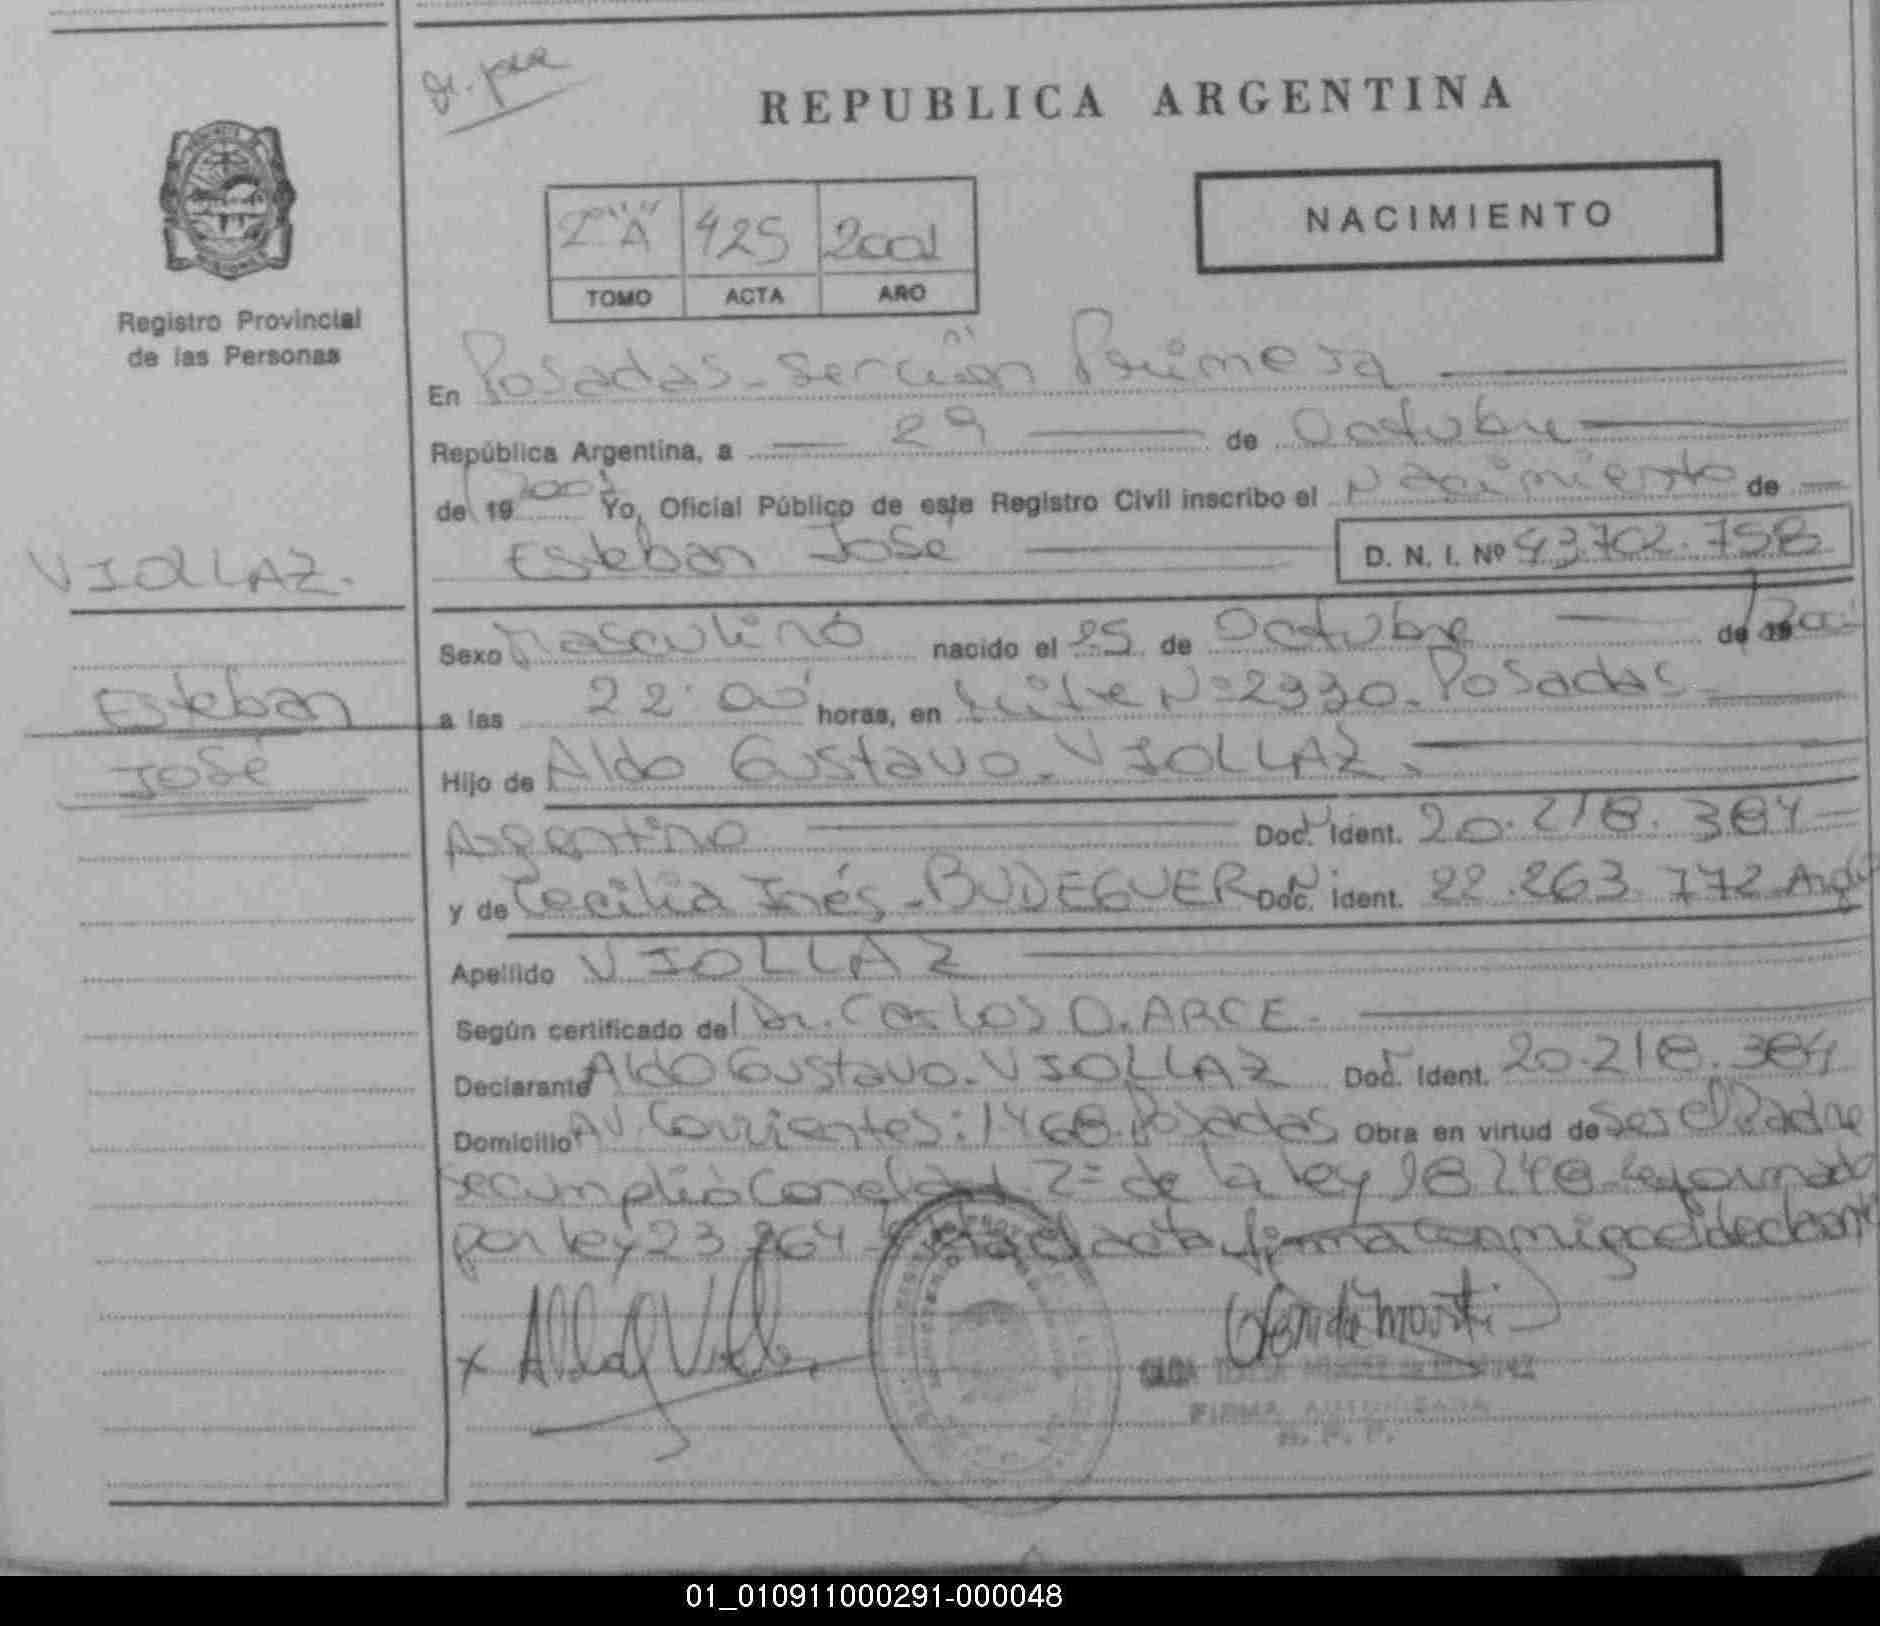 REPUBLICA ARGENTINA
NACIMIENTO
2º "A" 425 2001
TOMO ACTA AÑO
Registro Provincial
de las Personas
En Posadas - Sección Primera
República Argentina, a 29 de Octubre
de 19 2001 Yo, Oficial Público de este Registro Civil inscribo el Nacimiento de
Esteban José D. N. I. Nº 43.702.758
VIOLLAZ.
Sexo Masculino nacido el 25 de Octubre de 19 2001
Esteban
a las 22:00 horas, en Mitre Nº 2330. Posadas
José
Hijo de Aldo Gustavo. VIOLLAZ.
Argentino Doc. Ident. 20.218.384
y de Cecilia Inés - BUDEGUER Doc. Ident. 22.263.772
Apellido VIOLLAZ
Según certificado del Dr. Carlos O. ARCE.
Declarante Aldo Gustavo. VIOLLAZ Doc. Ident. 20.218.384
Domicilio Av. Corrientes: 1468. Posadas Obra en virtud de Ser el Padre
se cumplió con el 2º de la ley 18248
por ley 23.264 el acta firma conmigo el declarante
FIRMA AUTORIZADA
R. P. P.
01_010911000291-000048